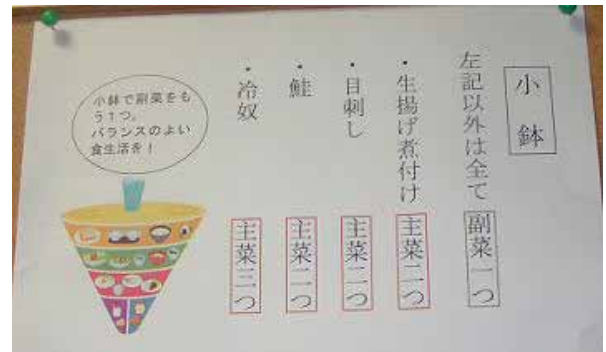 小鉢
左記以外は全て 副菜一つ
・生揚げ煮付け 主菜二つ
・目刺し 主菜二つ
・鮭 主菜二つ
・冷奴 主菜三つ
小鉢で副菜をも
う1つ。
バランスのよい
食生活を！